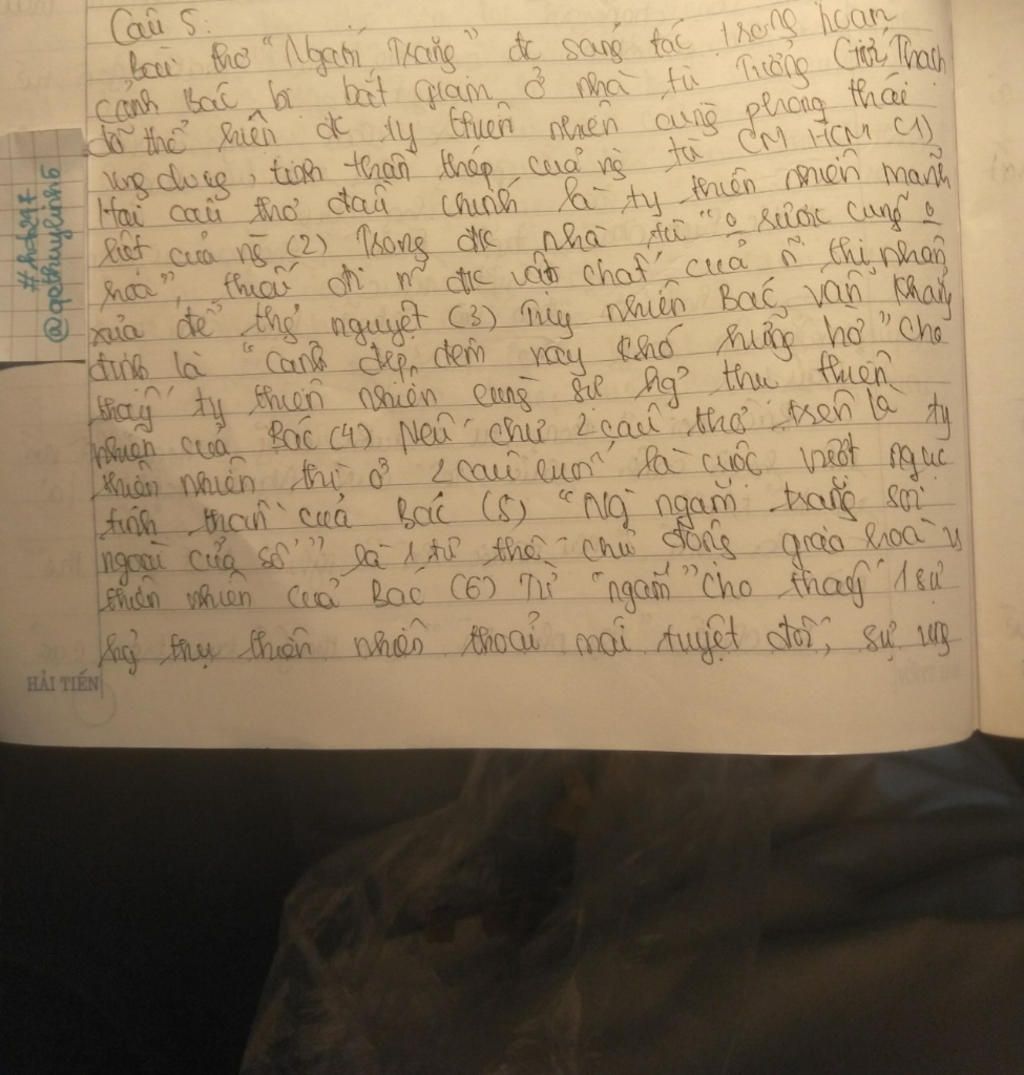 Câu 5:
Bài thơ "Ngắm Trăng" đc sáng tác trong hoàn
cảnh Bác bị bắt giam ở nhà tù Tưởng Giới Thạch
đã thể hiện đc ty thiên nhiên cùng phong thái
ung dung, tinh thần thép của ng tù CM HCM (1)
Hai câu thơ đầu chính là ty thiên nhiên mãnh
liệt của ng (2) Trong đk nhà tù "o rượu cũng o
hoa", thiếu đi n~ đk vật chất của n~ thi nhân
xưa để thg nguyệt (3) Tuy nhiên Bác vẫn khẳng
định là "cảnh đẹp đêm nay khó hững hờ" cho
thấy ty thiên nhiên cùng sự hg thụ thiên
nhiên của Bác (4) Nếu như 2 câu thơ trên là ty
thiên nhiên thì ở 2 câu cuối là cuộc vượt ngục
tinh thần của Bác (5) "Ng ngắm trăng soi
ngoài cửa sổ" là 1 tư thế chủ động giao hoà
thiên nhiên của Bác (6) Từ "ngắm" cho thấy 1 sự
hg thụ thiên nhiên thoải mái tuyệt đối, sự ung
HẢI TIẾN
#hoh247
@gethuylinh5